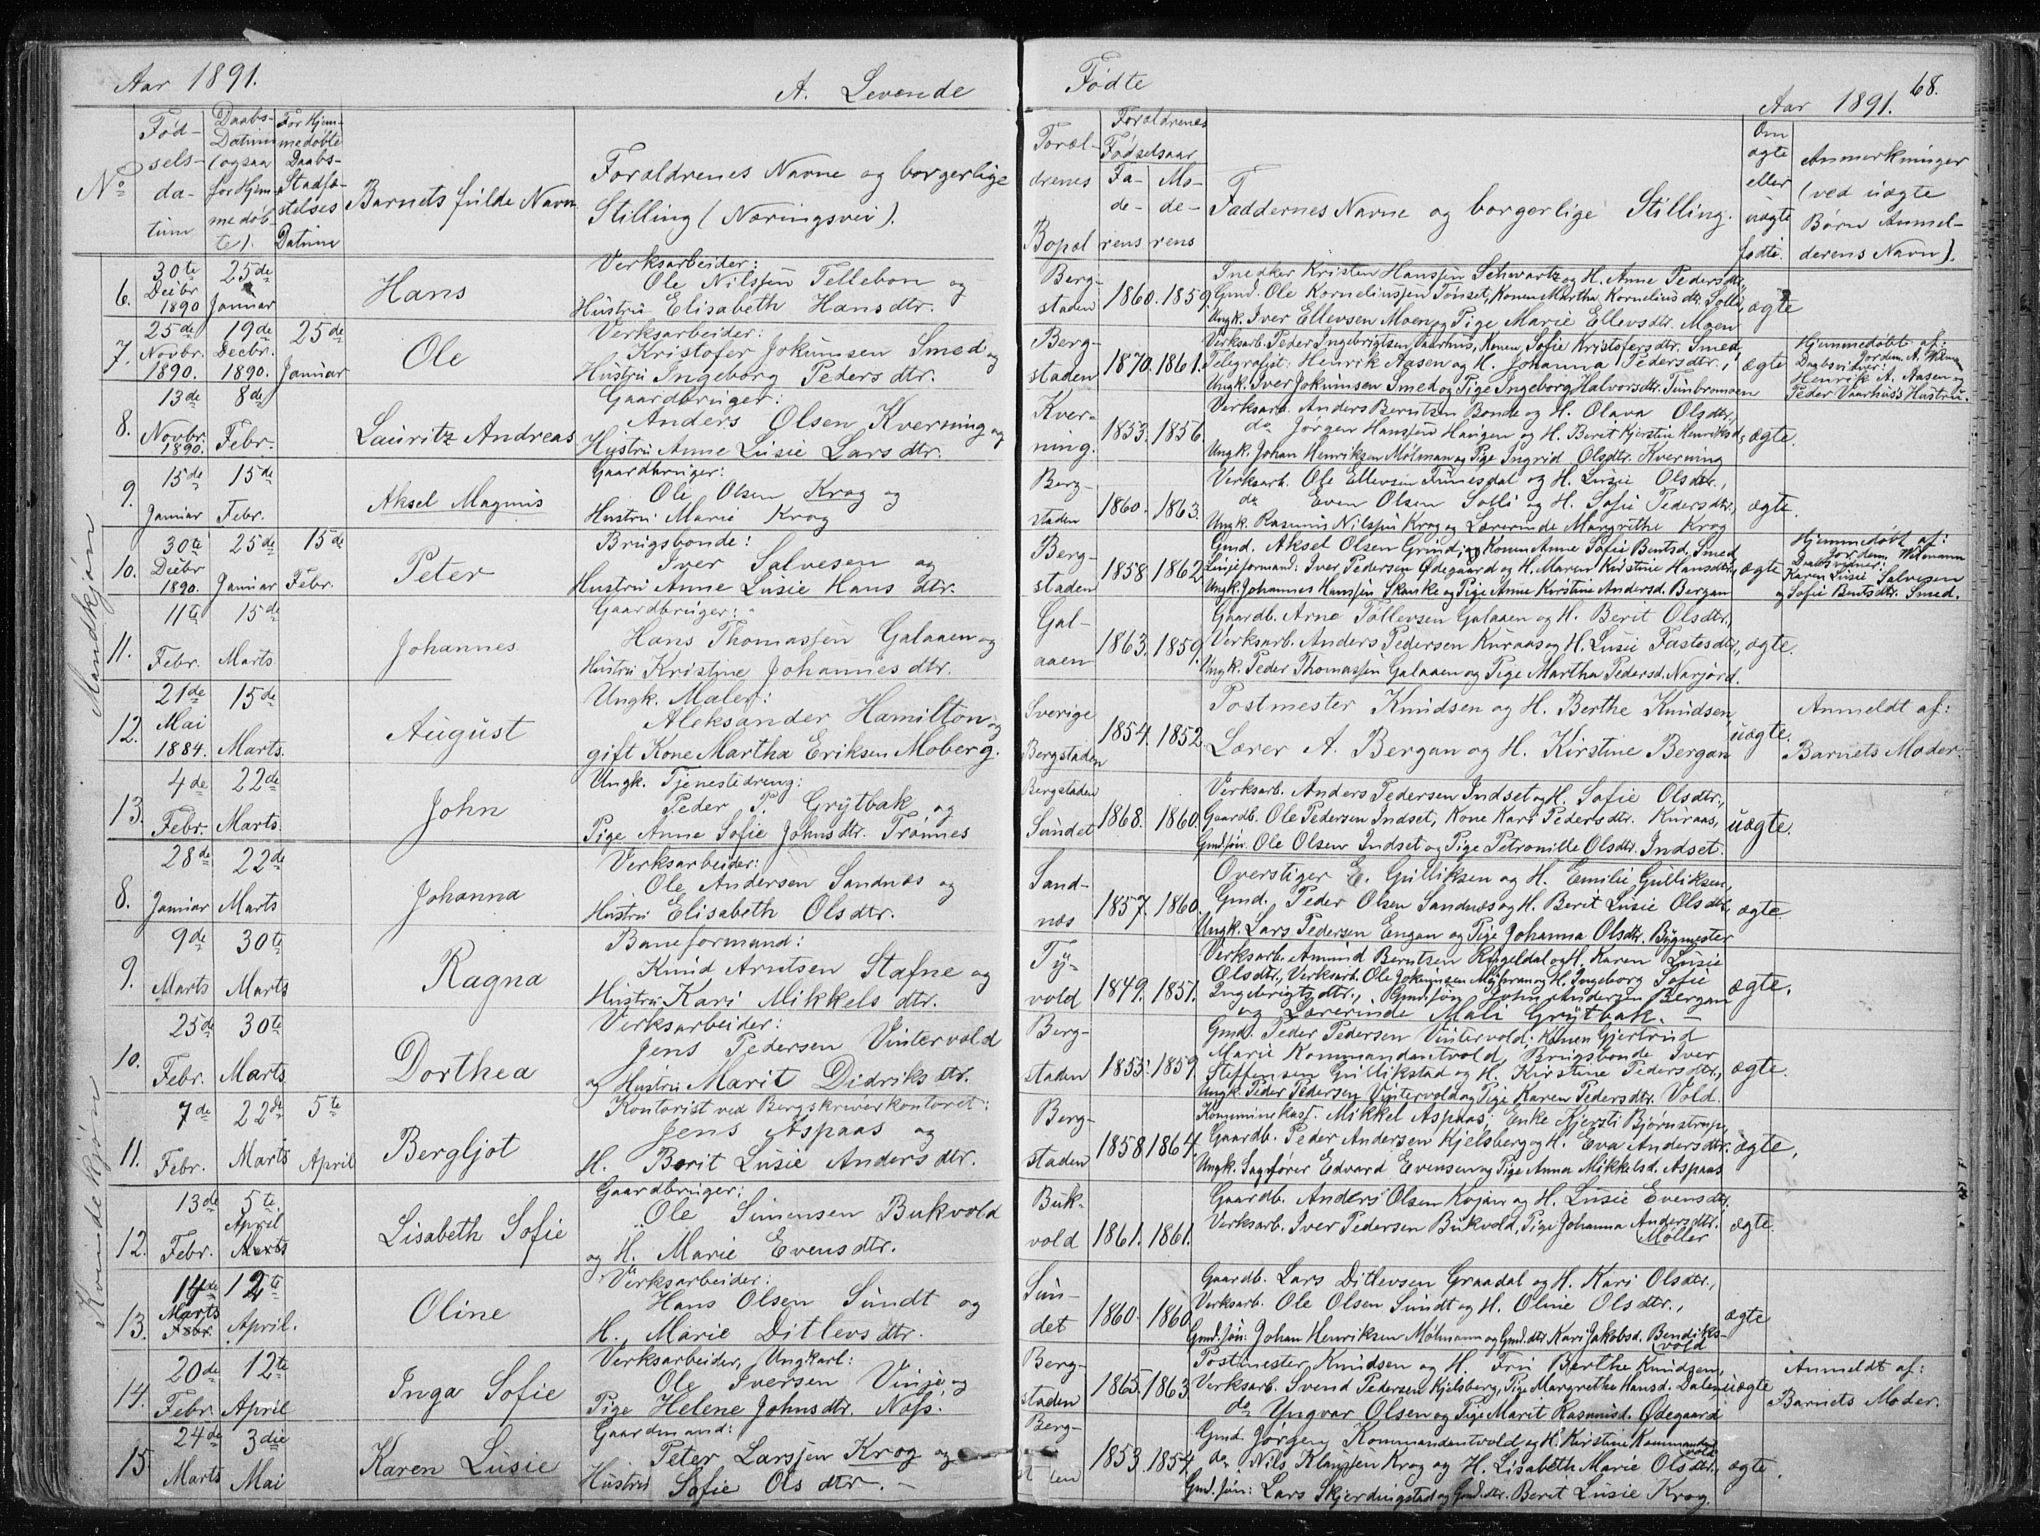 Aar 1891.
A. Levende
Fødte
Aar 1891.
68.
No
Fødselsdatum
Daabs-Datum (ogsaa for Hjemmedøbte).
For Hjemmedøbte Daabs-Stadfæstelses Datum
Barnets fulde Navn
Forældrenes Navne og borgerlige Stilling (Næringsvei).
Forældrenes Bopæl
Forældrenes Fødselsaar
Faderens
Moderens
Faddernes Navne og borgerlige Stilling.
Om ægte eller uægte født.
Anmerkninger (ved uægte Børn Anmelderens Navn).
Mandkjøn
6. 30te Decbr 1890 25de Januar Hans
Verksarbeider:
Ole Nilssen Tellebon og
Hustru Elisabeth Hansdtr.
Bergstaden 1860. 1859.
Snedker Kristen Hanssen Schwartz og H. Anne Pedersdtr,
Gmd. Ole Korneliussen Tønset, Konen Martha Kornelius dtr. Solli,
Ungk. Iver Ellevsen Moen og Pige Marie Ellevsdtr. Moen
ægte
7. 25de Novbr. 1890. 19de Decbr. 1890. 25de Januar Ole
Verksarbeider:
Kristofer Jokumsen Smed og
Hustru Ingeborg Peders dtr.
Bergstaden 1870. 1861.
Verksarb. Peder Ingebrigtsen Vaarhus, Konen Sofie Kristofersdtr. Smed,
Telegrafist Henrik Aasen og H. Johanna Pedersdtr,
Ungk. Iver Jokumsen Smed og Pige Ingeborg Halvorsdtr. Tunbromoen
ægte
Hjemmedøbt af:
Jordem. A. Wilmann
Daabsvidner:
Henrik A. Aasen og
Peder Vaarhus's Hustru.
8. 13de Novbr. 1890. 8de Febr. Lauritz Andreas
Gaardbruger:
Anders Olsen Kverning og
Hustru Anne Lusie Lars dtr.
Kverning. 1853. 1856.
Verksarb. Anders Berntsen Bonde og H. Olava Olsdtr,
do Jørgen Hanssen Haugen og H. Berit Kjerstine Henriksd,
Ungk. Johan Henriksen Mølman og Pige Ingrid Olsdtr. Kverning
ægte.
9. 15de Januar 15de Febr. Aksel Magnus
Gaardbruger:
Ole Olsen Krog og
Hustru Marie Krog
Bergstaden 1860. 1863.
Verksarb. Ole Ellevsen Tunesdal og H. Lusie Olsdtr,
do Even Olsen Solli og H. Sofie Pedersdtr,
Ungk. Rasmus Nilssen Krog og Lærerinde Margrethe Krog
ægte.
10. 30te Decbr 1890. 25de Januar 15de Febr. Peter
Brugsbonde:
Iver Salvesen og
Hustru Anne Lusie Hans dtr.
Bergstaden 1858. 1862.
Gmd. Aksel Olsen Grind og Konen Anne Sofie Bentsd. Smed
Linjeformand: Iver Pedersen Ødegaard og H. Maren Kirstine Hansdtr,
Ungk. Johannes Hanssen Skanke og Pige Anne Kirstine Andersd. Bergan
ægte
Hjemmedøbt af:
Jordem. Wilmann
Daabsvidner:
Karen Lusie Salvesen
og Sofie Bentsdtr. Smed.
11. 11te Febr. 15de Marts Johannes
Gaardbruger:
Hans Thomassen Galaaen og
Hustru Kristine Johannes dtr.
Galaaen 1863. 1859.
Gaardb. Arne Tollevsen Galaaen og H. Berit Olsdtr,
Verksarb. Anders Pedersen Kuraas og H. Lusie Fastesdtr,
Ungk. Peder Thomassen Galaaen og Pige Martha Pedersd. Narjord.
ægte.
12. 21de Mai 1884. 15de Marts. August
Ungk. Maler:
Aleksander Hamilton og
gift Kone Martha Eriksen Moberg.
Sverige Bergstaden 1854. 1852.
Postmester Knudsen og H. Berthe Knudsen,
Lærer A. Bergan og H. Kirstine Bergan
uægte.
Anmeldt af:
Barnets Moder.
13. 4de Febr. 22de Marts. John
Ungk. Tjenestedreng:
Peder P. Grytbak og
Pige Anne Sofie Johnsdtr. Trønnes
Bergstaden Sundet 1868. 1860.
Verksarb. Anders Pedersen Indset og H. Sofie Olsdtr,
Gaardb. Ole Pedersen Indset, Kone Kari Pedersdtr. Kuraas,
Gmd.søn. Ole Olsen Indset og Pige Petronille Olsdtr. Indset.
uægte.
Kvindekjøn
8. 28de Januar 22de Marts Johanna
Verksarbeider:
Ole Andersen Sandnæs og
Hustru Elisabeth Olsdtr.
Sandnæs 1857. 1860.
Overstiger E. Gulliksen og H. Emilie Gulliksen,
Gmd. Peder Olsen Sandnæs og H. Berit Lusie Olsdtr,
Ungk. Lars Pedersen Engan og Pige Johanna Olsdtr. Bygmester
ægte
9. 9de Marts 30te Marts Ragna
Baneformand:
Knud Arntsen Stafne og
Hustru Kari Mikkels dtr.
Tyvold 1849. 1851.
Verksarb. Amund Berntsen Rugeldal og H. Karen Lusie
Olsdtr, Verksarb. Ole Jokumsen Myhran og H. Ingeborg Sofie
Ingebrigtsdtr., Gmd.søn John Andersen Bergan
og Lærerinde Mali Grytbak.
ægte.
10. 25de Febr. 30te Marts Dorthea
Verksarbeider:
Jens Pedersen Vintervold
og Hustru Marit Didriks dtr.
Bergstaden 1853. 1859.
Gmd. Peder Pedersen Vintervold, Konen Gjertrud
Marie Kommandantvold, Brugsbonde Iver
Steffensen Gullikstad og H. Kirstine Pedersdtr,
Ungk. Peder Pedersen Vintervold og Pige Karen Pedersdtr. Vold.
ægte.
11. 7de Febr. 22de Marts 5te April Bergljot
Kontorist ved Bergskriverkontoret:
Jens Aspaas og
H. Berit Lusie Anders dtr.
Bergstaden 1858. 1864.
Kommunekas. Mikkel Aspaas, Enke Kjersti Bjørnstrup,
Gaardb. Peder Andersen Kjelsberg og H. Eva Andersdtr.
Ungk. Sagfører Edvard Evensen og Pige Anna Mikkelsd. Aspaas
ægte,
12. 13de Febr. 5te April Marts Lisabeth Sofie
Gaardbruger:
Ole Simensen Bukvold
og H. Marie Evensdtr.
Bukvold 1861. 1861.
Gaardb. Anders Olsen Kojan og H. Lusie Evensdtr.
Verksarb. Iver Pedersen Bukvold, Pige Johanna Andersdtr. Møller
ægte.
13. 14de Marts Febr. 12te April. Oline
Verksarbeider:
Hans Olsen Sundt og
H. Marie Ditlevs dtr.
Sundet 1860. 1860.
Gaardb. Lars Ditlevsen Graadal og H. Kari Olsdtr,
Verksarb. Ole Olsen Sundt og H. Oline Olsdtr,
Gmd.søn: Johan Henriksen Mølmann og Gmd.dtr Kari Jakobsd. Bendiksvold
ægte
14. 20de Febr. 12te April Inga Sofie
Verksarbeider, Ungkarl:
Ole Iversen Vinje og
Pige Helene Johnsdtr. Næss.
Bergstaden 1865. 1863.
Postmester Knudsen og H. Fru Berthe Knudsen,
Verksarb. Svend Pedersen Kjelsberg, Pige Margrethe Hansd. Dalen
do Yngvar Olsen og Pige Marit Rasmusd. Ødegaard
uægte
Anmeldt af:
Barnets Moder.
15. 24de Marts 3die Mai Karen Lusie
Gaardmand:
Peter Larssen Krog og
Hustru Sofie Ols dtr.
Bergstaden 1853. 1854.
Gmd. Jørgen Kommandantvold og H. Kirstine Kommandantvold
do Nils Klaussen Krog og H. Lisabeth Marie Olsdtr,
Gmd.søn: Lars Skjerdingstad og Gmd.dtr. Berit Lusie Krog.
ægte.